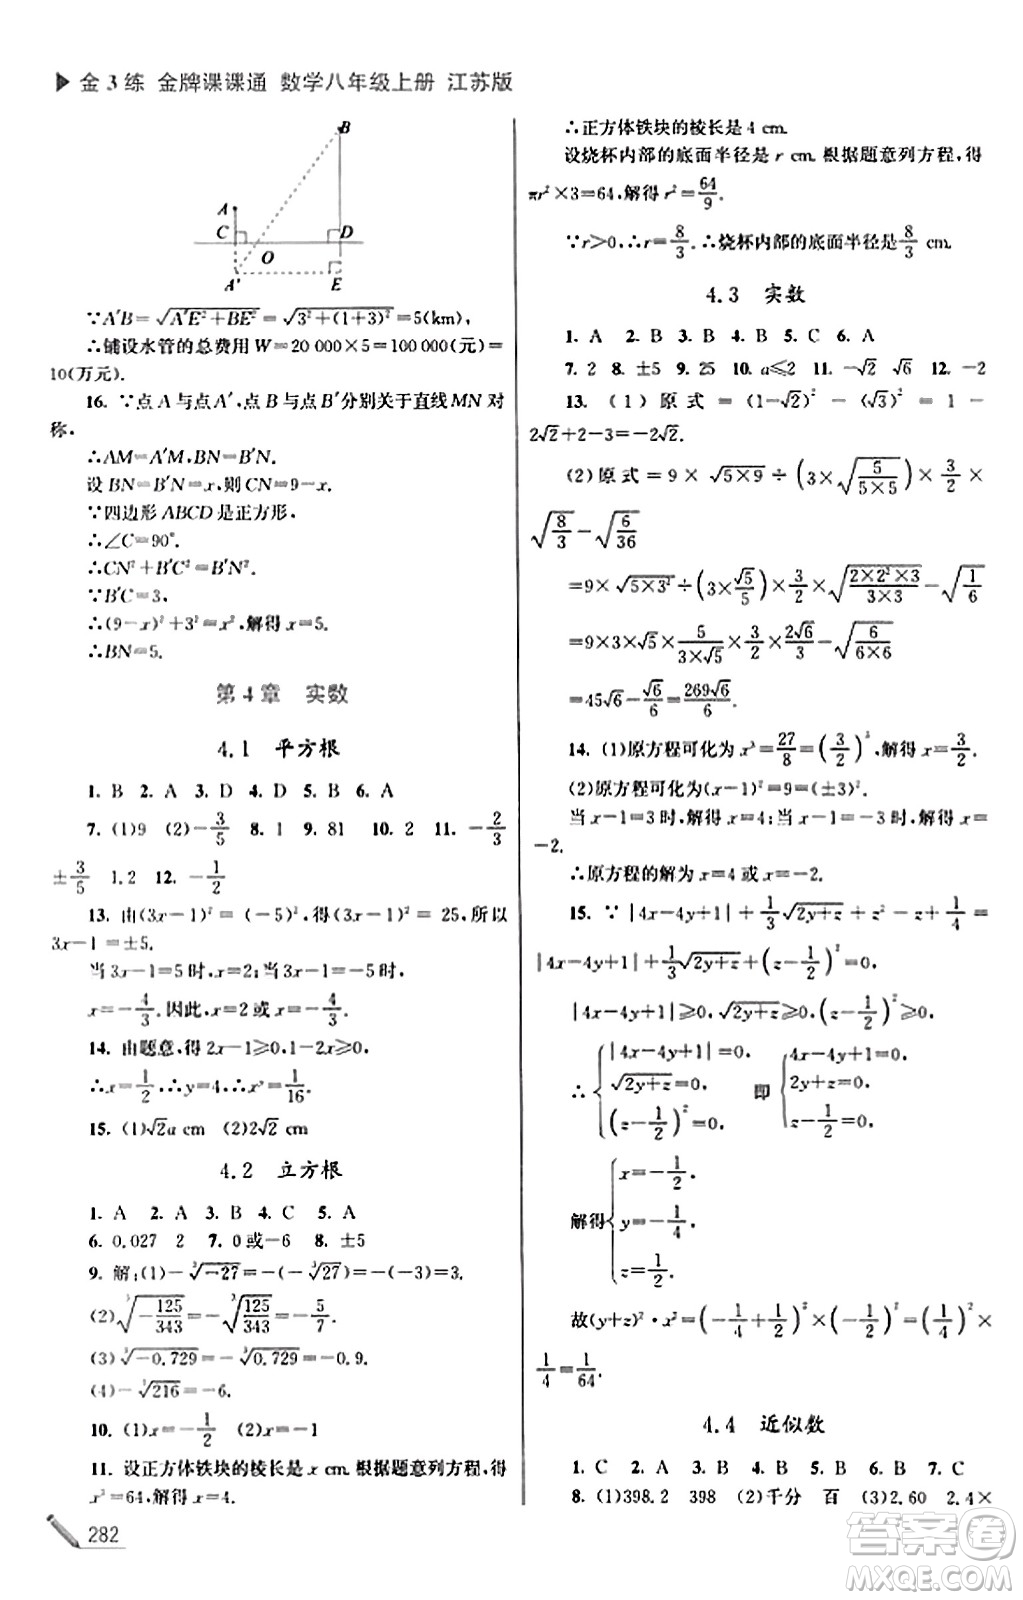 金3练 金牌课课通 数学八年级上册 江苏版
B
A
C
D
O
A′
E
∵A′B=√(A′E²+BE²)=√(3²+(1+3)²)=5(km),
∴铺设水管的总费用 W=20 000×5=100 000(元)=
10(万元).
16. ∵点A与点A′,点B与点B′分别关于直线MN对
称,
∴AM=A′M,BN=B′N.
设BN=B′N=x,则CN=9-x.
∵四边形ABCD是正方形,
∴∠C=90°.
∴CN²+B′C²=B′N².
∵B′C=3,
∴(9-x)²+3²=x²,解得x=5.
∴BN=5.
第4章 实数
4.1 平方根
1. B 2. A 3. D 4. D 5. B 6. A
7. (1)9 (2)-3/5 8. 1 9. 81 10. 2 11. -2/3
±3/5 1.2 12. -1/2
13. 由(3x-1)²=(-5)²,得(3x-1)²=25,所以
3x-1=±5.
当3x-1=5时,x=2;当3x-1=-5时,
x=-4/3. 因此,x=2或x=-4/3.
14. 由题意,得2x-1≥0,1-2x≥0,
∴x=1/2,∴y=4,∴xʸ=1/16.
15. (1)√2a cm (2)2√2 cm
4.2 立方根
1. A 2. A 3. B 4. C 5. A
6. 0.027 2 7. 0或-6 8. ±5
9. 解:(1)-∛(-27)=-(-∛27)=-(-3)=3.
(2)∛(-125/343)=-∛(125/343)=-5/7.
(3)∛(-0.729)=-∛0.729=-0.9.
(4)-∛216=-6.
10. (1)x=-1/2 (2)x=-1
11. 设正方体铁块的棱长是x cm.根据题意列方程,得
x³=64,解得x=4.
282
∴正方体铁块的棱长是4 cm.
设烧杯内部的底面半径是r cm.根据题意列方程,得
πr²×3=64,解得r²=64/9.
∵r>0,∴r=8/3.∴烧杯内部的底面半径是8/3 cm.
4.3 实数
1. A 2. B 3. B 4. B 5. C 6. A
7. 2 8. ±5 9. 25 10. a≤2 11. -√2 √6 12. -2
13. (1)原式=(1-√2)²-(√3)²=1-
2√2+2-3=-2√2.
(2)原式=9×√(5×9)÷(3×√(5/(5×5))×3/2×
√(8/3)-√(6/36)
=9×√(5×3²)÷(3×√5/5)×3/2×√((2×2²×3)/(3×3))-√(1/6)
=9×3×√5×5/(3×√5)×3/2×2√6/3-√(6/(6×6))
=45√6-√6/6=269√6/6.
14. (1)原方程可化为x³=27/8=(3/2)³,解得x=3/2.
(2)原方程可化为(x-1)²=9=(±3)².
当x-1=3时,x=4;当x-1=-3时,x=
-2.
∴原方程的解为x=4或x=-2.
15. ∵|4x-4y+1|+1/3√(2y+z)+z²-z+1/4=
|4x-4y+1|+1/3√(2y+z)+(z-1/2)²=0,
|4x-4y+1|≥0,√(2y+z)≥0,(z-1/2)²≥0,
∴{|4x-4y+1|=0, √(2y+z)=0, (z-1/2)²=0, 即{4x-4y+1=0, 2y+z=0, z-1/2=0,
解得{x=-1/2, y=-1/4, z=1/2.
故(y+z)²·x²=(-1/4+1/2)²×(-1/2)²=(1/4)²×
1/4=1/64.
4.4 近似数
1. C 2. A 3. C 4. A 5. B 6. B 7. C
8. (1)398.2 398 (2)千分 百 (3)2.60 2.4×
答案卷
MXQE.COM